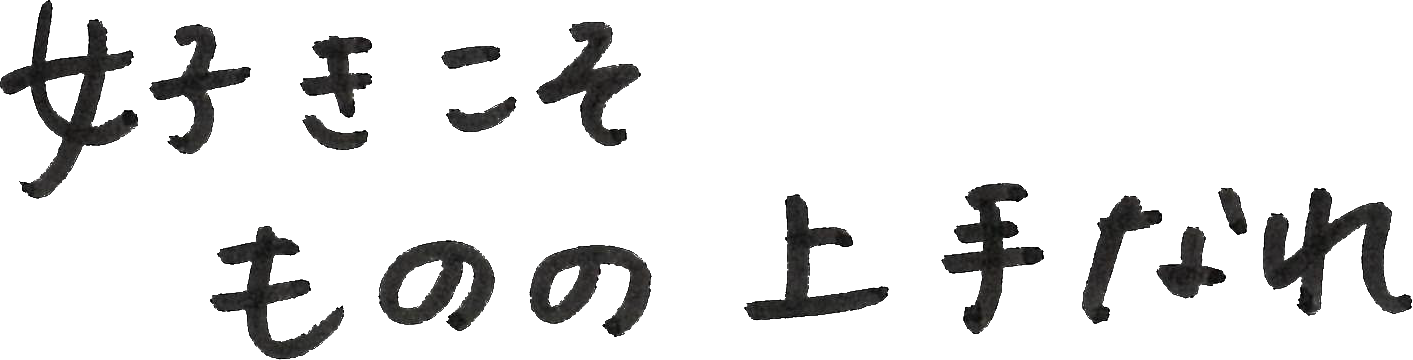 好きこそ
ものの上手なれ